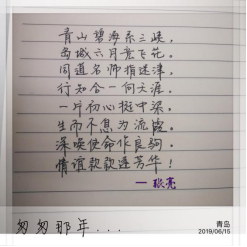 青山碧海系三峡,
岛城六月意飞花。
同道名师指迷津,
行知合一向天涯。
一片初心挺中梁,
生而不息为流霞。
深唤使命作良驹,
情谊款款逐芳华!
匆匆那年...
青岛
2019/06/15